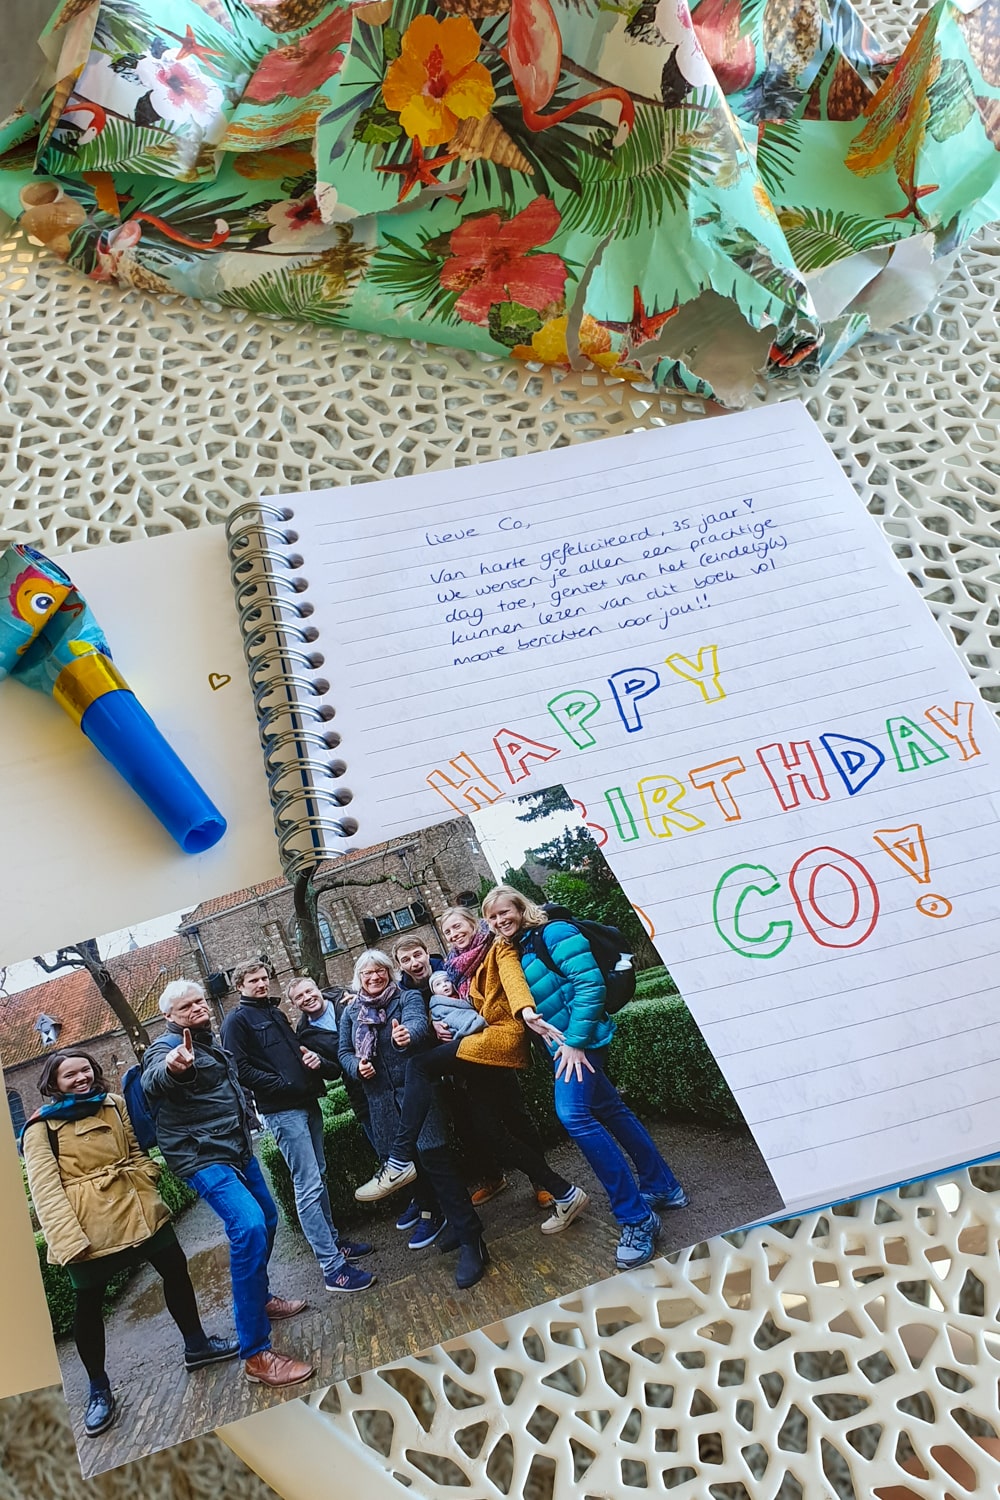 Lieve Co,
Van harte gefeliciteerd, 35 jaar!
We wensen je allen een prachtige
dag toe, geniet van het (eindelijk)
kunnen lezen van dit boek vol
mooie berichten voor jou!!
HAPPY
BIRTHDAY
CO!